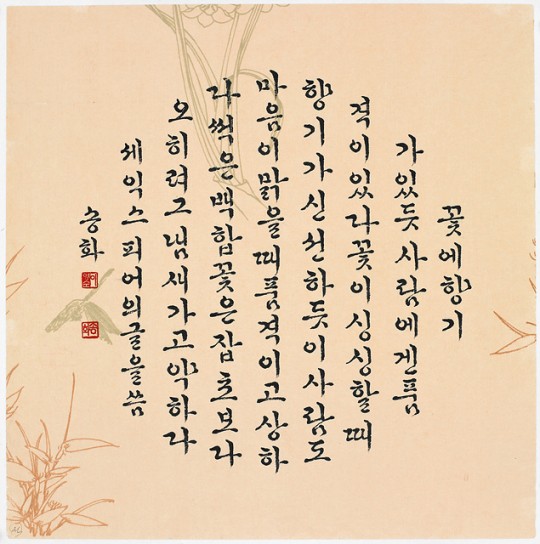 꽃에향기
가있듯사람에겐품
격이있다꽃이싱싱할때
향기가신선하듯이사람도
마음이맑을때품격이고상하
다썩은백합꽃은잡초보다
오히려그냄새가고약하다
세익스피어의글을씀
승화